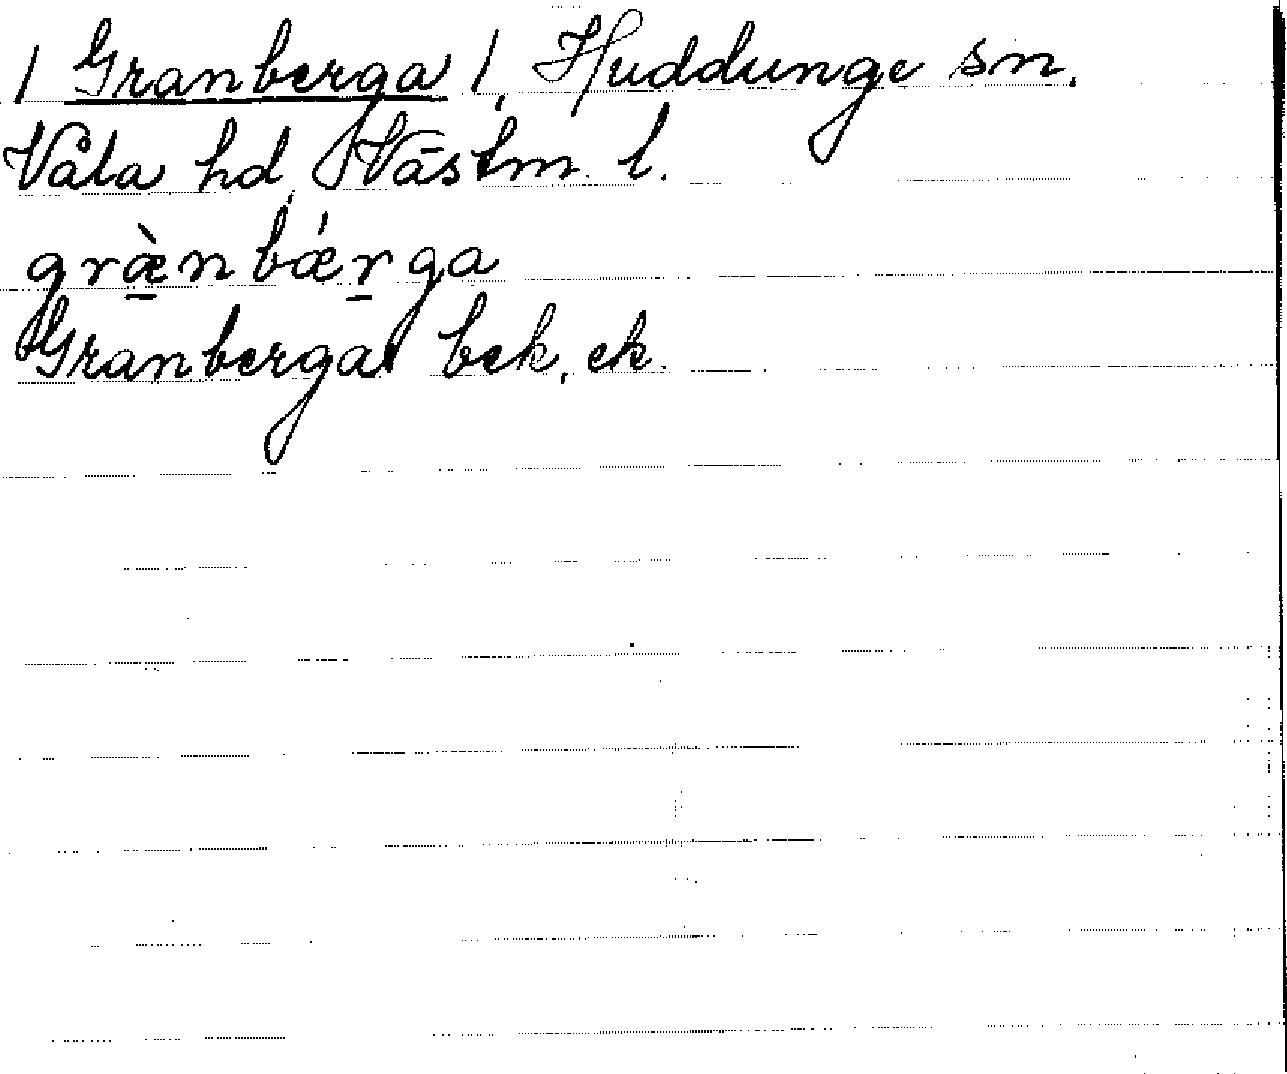 / Granberga /, Huddunge sn.
Våla hd, Västm. l.
græ̱̀nbǽṟga
Granberga bek, ek.